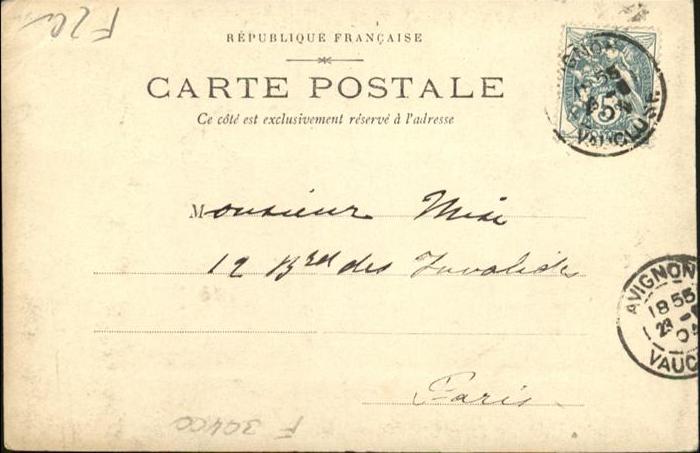 RÉPUBLIQUE FRANÇAISE
CARTE POSTALE
Ce côté est exclusivement réservé à l'adresse
5
VAUCLUSE
Monsieur
12 Brd des Invalides
Paris
AVIGNON
18 55
VAUC
F 30400